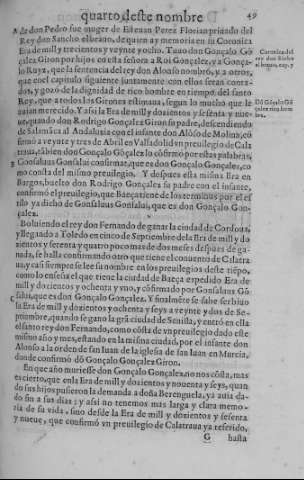 quarto deste nombre 49
A de don Pedro fue muger de Esteuan Perez Florian priuado del
Rey don Sancho el brauo, de quien ay memoria en su Coronica
Era de mill y trezientos y veynte y ocho. Tuuo don Gonçalo Gõ
çalez Giron por hijos en esta señora a Roi Gonçalez, y a Gonça-
lo Ruya, que la sentencia del rey don Alonso nombró, y a otros,
que el capitulo siguiente juntamente con ellos seran conta-
dos, y gozó de la dignidad de rico hombre en tiempo del santo
Rey, que a todos los Girones estimaua, segun lo mucho que le
auian merecido. Y assi la Era de mill y dozientos y setenta y nue-
ue quando don Rodrigo Gonçalez Giron su padre, descendiendo
de Salamãca al Andaluzia con el infante don Alõso de Molina, cõ
firmó a veynte y tres de Abril en Valladolid vn preuilegio de Cala
traua, tãbien don Gonçalo Gõçalez lo cõfirmó por estas palabras,
Gonsaluus Gonsalui confirmat, que es don Gonçalo Gonçalez, co
mo consta del mismo preuilegio. Y despues esta misma Era en
Burgos, hecho don Rodrigo Gonçalez su padre con el infante,
confirmó el preuilegio, que Baeça tiene de los terminos por el es
tilo ya dicho de Gonsaluus Gonsalui, que es don Gonçalo Gon-
çalez.
Boluiendo el rey don Fernando de ganar la ciudad de Cordoua,
y llegando a Toledo en cinco de Septiembre dela Era de mill y do
zientos y setenta y quatro poco mas de dos meses despues de ga-
nada, se halla confirmando otro que tiene el conuento de Calatra
ua, y casi siempre se lee su nombre en los preuilegios deste tiẽpo,
como lo enseña el que tiene la ciudad de Baeça expedido Era de
mill y dozientos y ochenta y vno, y cõfirmado por Gonsaluus Gõ
C salui, que es don Gonçalo Gonçalez. Y finalmẽte se sabe ser biuo
la Era de mill y dozientos y ochenta y seys a veynte y dos de Se-
ptiembre, quando se gano la grã ciudad de Seuilla, y entró en ella
el santo rey don Fernando, como cõsta de vn preuilegio dado este
mismo año y mes, estando en la misma ciudad, por el infante don
Alonso a la orden de san Iuan de la iglesia de san Iuan en Murcia,
donde confirmó dõ Gonçalo Gonçalez Giron.
En que año muriesse don Gonçalo Gonçalez, no nos cõsta, mas
es cierto, que enla Era de mill y dozientos y nouenta y seys, quan
do sus hijos pusieron la demanda a doña Berenguela, ya auia da-
do fin a sus dias; y assi no tenemos mas larga y clara memo-
ria de su vida, sino desde la Era de mill y dozientos y sesenta
y nueue, que confirmó vn preuilegio de Calatraua ya referido,
G hasta
Coronica del
rey don
el brauo, cap.
Dõ Gonçalo Gõ
çalez rico hom
bre.